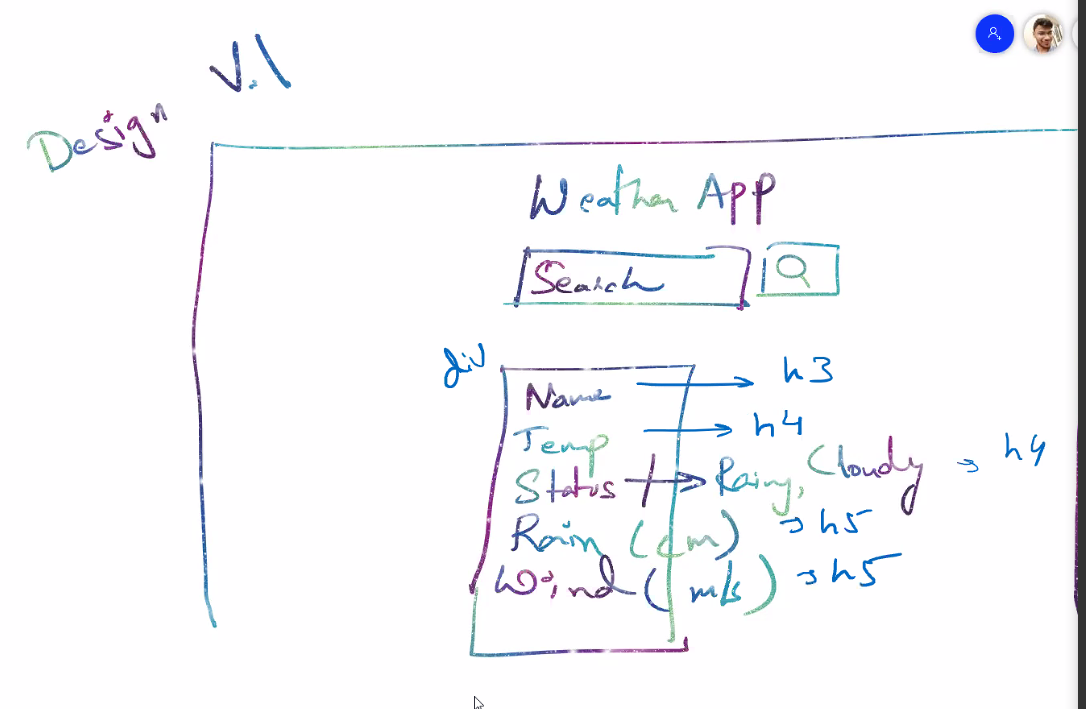 V.1
Design
Weather App
Search
div
Name → h3
Temp → h4
Status → Rainy, Cloudy → h4
Rain (cm) → h5
Wind (m/s) → h5